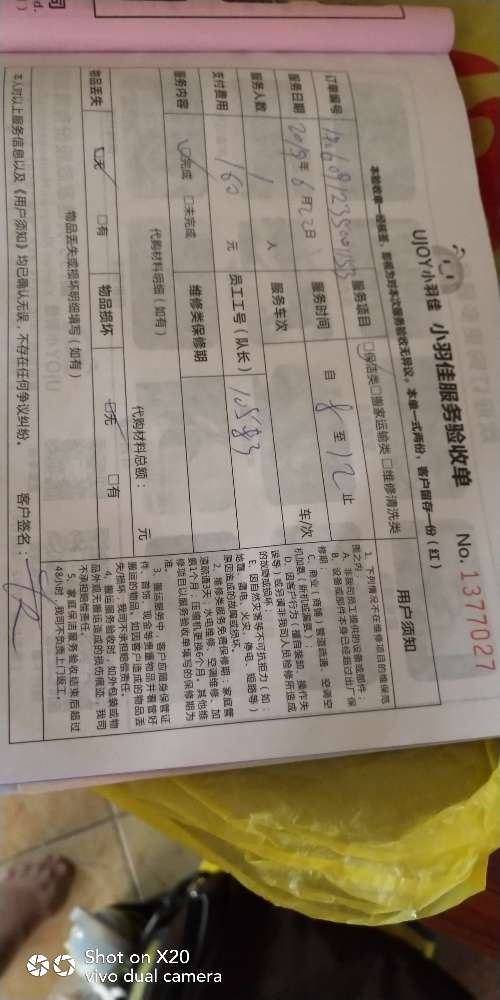 UJOY小羽佳 小羽佳服务验收单
No. 1377027
本验收单一经核签,即视为对本次服务验收无异议。本单一式两份,客户留存一份(红)
订单编号
服务项目 保洁类 □搬家运输类 □维修清洗类
服务日期 2019年6月23日 服务时间 自 8 至 12 止
服务人数 1 人 服务车次 车/次
支付费用 160 元 员工工号(队长) 10583
服务内容 完成 □未完成 维修类保修期
代购材料明细(如有) 代购材料总额: 元
物品丢失 无 □有 物品损坏 无 □有
物品丢失或损坏明细填写(如有)
本人对以上服务信息以及《用户须知》均已确认无误,不存在任何争议纠纷。 客户签名:
用户须知
1、下列情况不在维修项目的维保范
围之内:
A、非我司员工提供的设备或部件;
B、设备或部件本身已经超过出厂保
修期;
D、因客户行为,擅自装卸、操作失
误等,或另请非我司人员检修所造成
的故障或损坏。
E、因自然灾害等不可抗拒力(如:
地震、雷电、火灾、停电、短路等)
原因造成的故障或损坏。
2、维修类服务免费保修期:家庭管
道疏通3天,水电维修、空调维修、加
氟1个月,压缩机更换6个月,其他维
修项目以服务验收单填写的保修期为
准。
3、搬运服务中,客户应随身保管证
件、首饰、现金等贵重物品并看管好
搬运的物品。如因客户造成的物品丢
失/损坏,我司不承担赔偿责任。
4、搬运服务验收时,如外包装或物
品外观无搬运造成的损伤痕迹,我司
不承担赔偿责任。
5、家庭保洁服务验收结束后超过
48小时,我司不负责上门返工。
Shot on X20
vivo dual camera